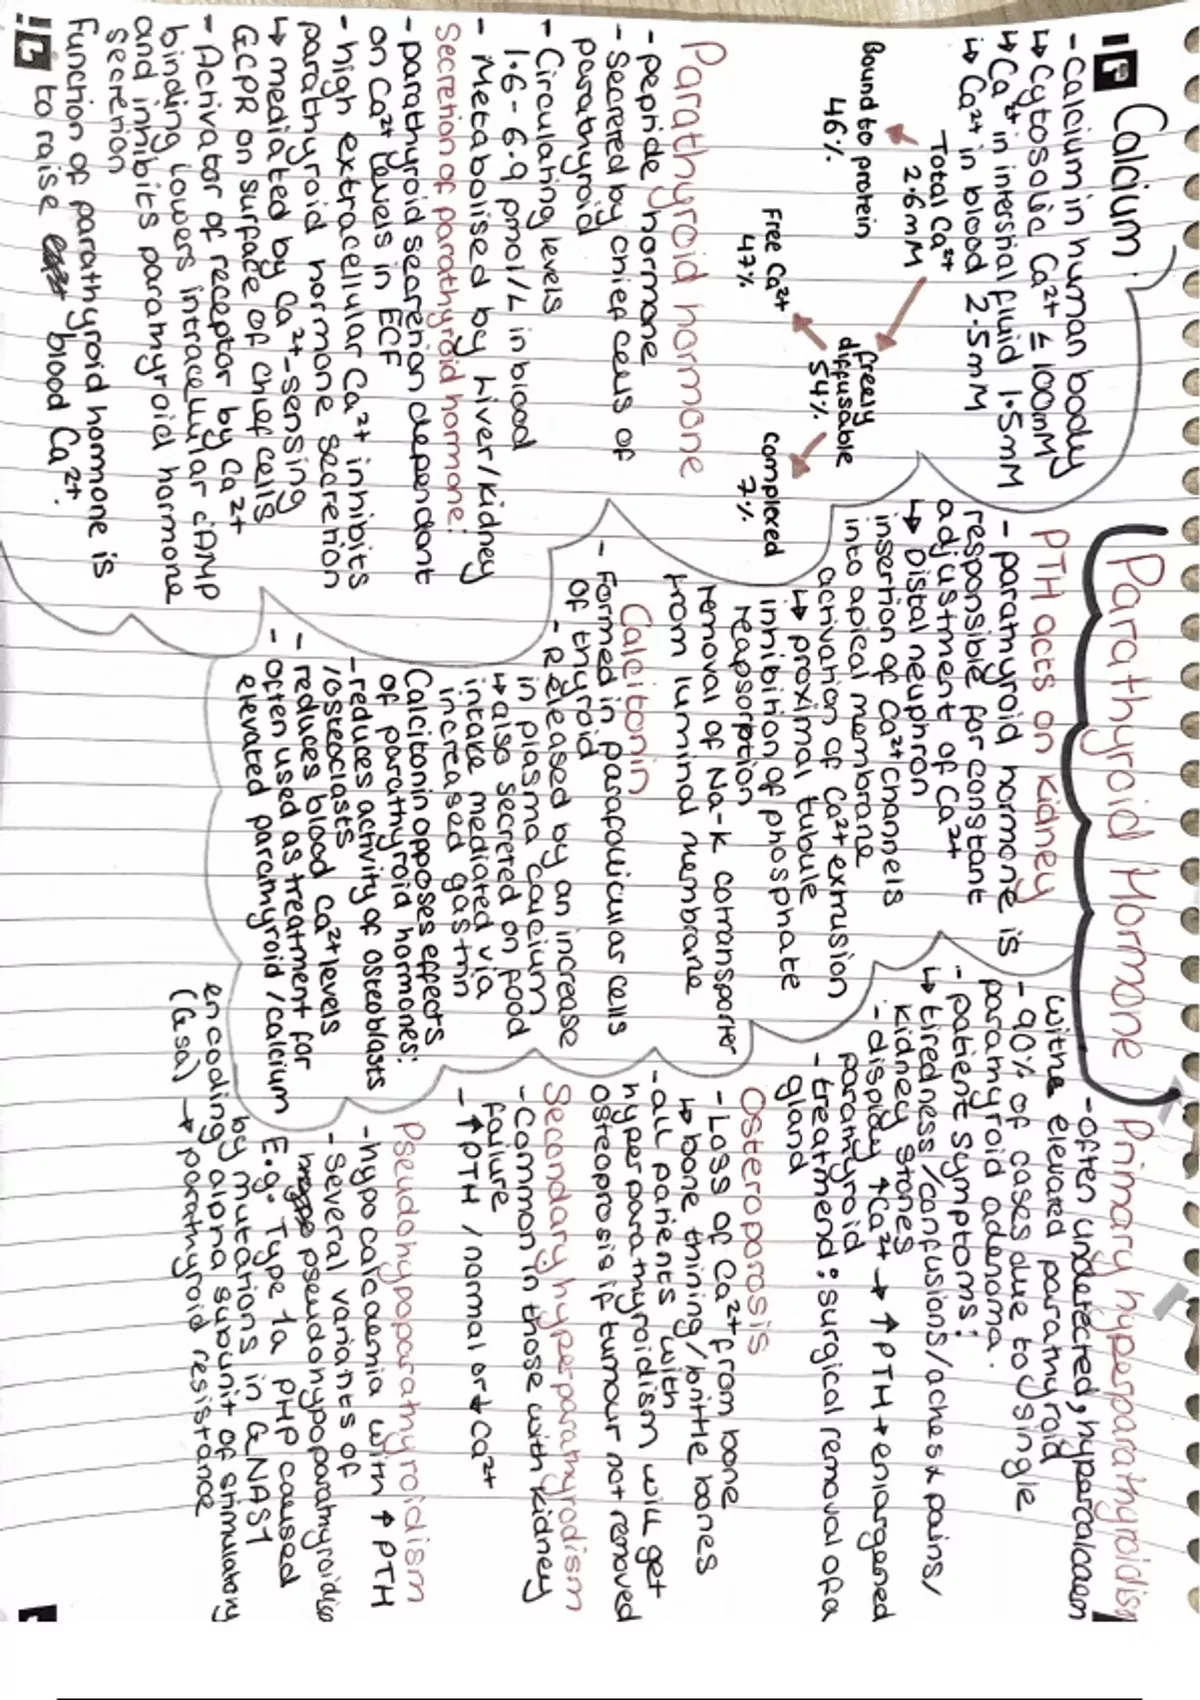 Parathyroid Hormone
Calcium
- Calcium in human body
↳ Cytosolic Ca²⁺ ≤ 100nM
↳ Ca²⁺ in interstial fluid 1.5mM
↳ Ca²⁺ in blood 2.5mM
Total Ca²⁺
2.6mM
Bound to protein
46%
freely
diffusable
54%
Free Ca²⁺
47%
complexed
7%
Parathyroid hormone
- peptide hormone
- Secreted by chief cells of
parathyroid
- Circulating levels
1.6 - 6.9 pmol/L in blood
- Metabolised by liver/kidney
Secretion of parathyroid hormone:
- parathyroid secretion dependant
on Ca²⁺ levels in ECF
- high extracellular Ca²⁺ inhibits
parathyroid hormone secretion
↳ mediated by Ca²⁺-sensing
GCPR on surface of chief cells
- Activator of receptor by Ca²⁺
binding lowers intracellular cAMP
and inhibits parathyroid hormone
secretion
Function of parathyroid hormone is
to raise blood Ca²⁺.
PTH acts on kidney
- parathyroid hormone is
responsible for constant
adjustment of Ca²⁺
↳ Distal neuphron
insertion of Ca²⁺ channels
into apical membrane
activation of Ca²⁺ extrusion
↳ proximal tubule
inhibition of phosphate
reapsorption
removal of Na-K cotransporter
from luminal membrane
Calcitonin
- Formed in parafollicular cells
of thyroid
- Released by an increase
in plasma calcium
↳ also secreted on food
intake mediated via
increased gastrin
Calcitonin opposes effects
of parathyroid hormones:
- reduces activity of osteoblasts
/osteoclasts
- reduces blood Ca²⁺ levels
- often used as treatment for
elevated parathyroid /calcium
Primary hyperparathyroidism
- often undetected, hypercalcaem
with elevated parathyroid
- 90% of cases due to single
parathyroid adenoma.
- patient symptoms:
↳ tiredness/confusions/aches x pains/
kidney stones
- display ↑Ca²⁺ → ↑PTH + enlargened
parathyroid
- treatmend: surgical removal of a
gland
Osteroporosis
- Loss of Ca²⁺ from bone
↳ bone thining/brittle bones
- all patients with
hyperparathyroidism will get
osteoprosis if tumour not removed
Secondary hyperparathyrodism
- Common in those with kidney
failure
- ↑PTH / normal or ↓Ca²⁺
Pseudohypoparathyroidism
- hypocalcaemia with ↑PTH
- Several variants of
pseudohypoparathyroidis
E.g. Type 1a PHP caused
by mutations in GNAS1
encoding alpha subunit of stimulatory
(Gsa) → parathyroid resistance